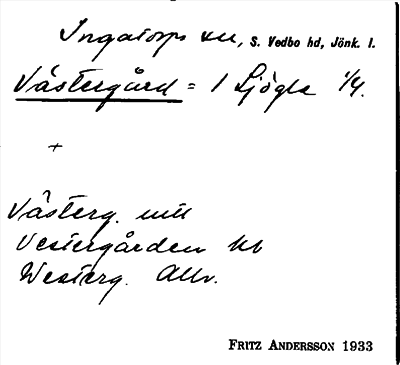 Ingatorps sn, S. Vedbo hd, Jönk. l.
Västergård = 1 Sjögla 1/4.
+
Västerg. uttl
Vestergården kb
Westerg. Allv.
FRITZ ANDERSSON 1933